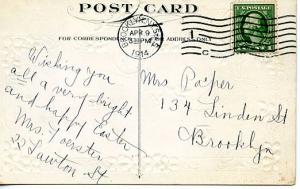 POST CARD
FOR CORRESPONDENCE
BROOKLYN, N.Y.
APR 9
PM
1914
1
C
U.S. POSTAGE
Wishing you
all a very bright
and happy Easter
Mrs. Foerster
22 Lawton St
Mrs Paper
134 Linden St
Brooklyn